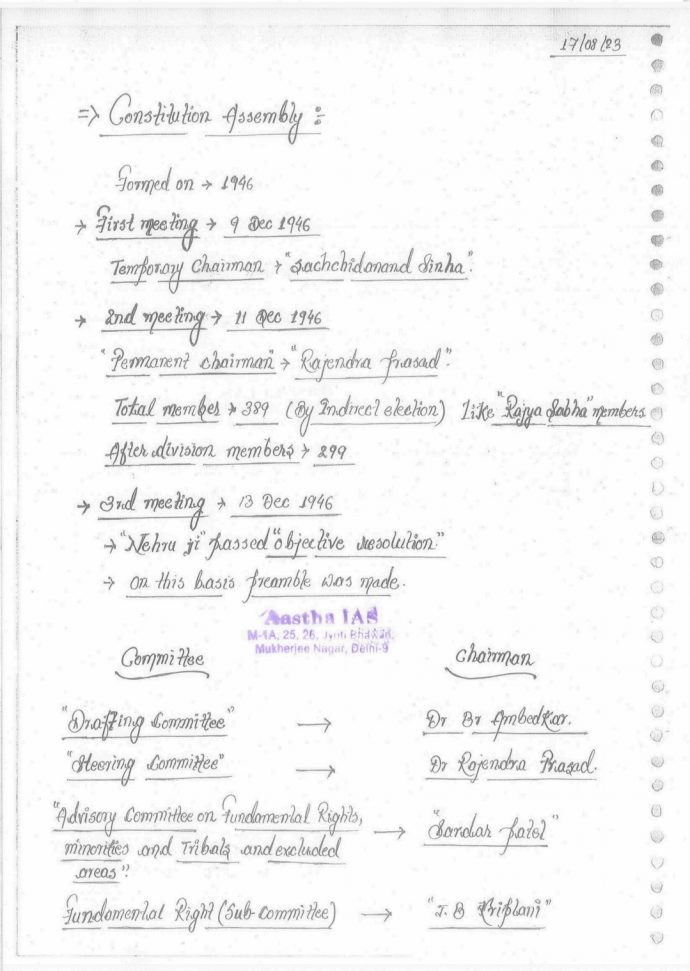 17/08/23
=> Constitution Assembly :-
Formed on → 1946
→ First meeting → 9 Dec 1946
Temporary Chairman → "Sachchidanand Sinha".
→ 2nd meeting → 11 Dec 1946
"Permanent chairman → "Rajendra prasad".
Total member → 389 (By Indirect election) Like "Rajya Sabha" members
After division members → 299
→ 3rd meeting → 13 Dec 1946
→ "Nehru ji" passed "objective resolution."
→ on this basis preamble was made.
Aastha IAS
M-1A, 25, 26, Jyoti Bhawan,
Mukherjee Nagar, Delhi-9
Committee Chairman
"Drafting Committee" → Dr Br Ambedkar.
"Steering Committee" → Dr Rajendra Prasad.
"Advisory Committee on Fundamental Rights,
minorities and Tribals and excluded → "Sardar patel"
areas".
Fundamental Right (Sub-committee) → "J. B Kriplani"